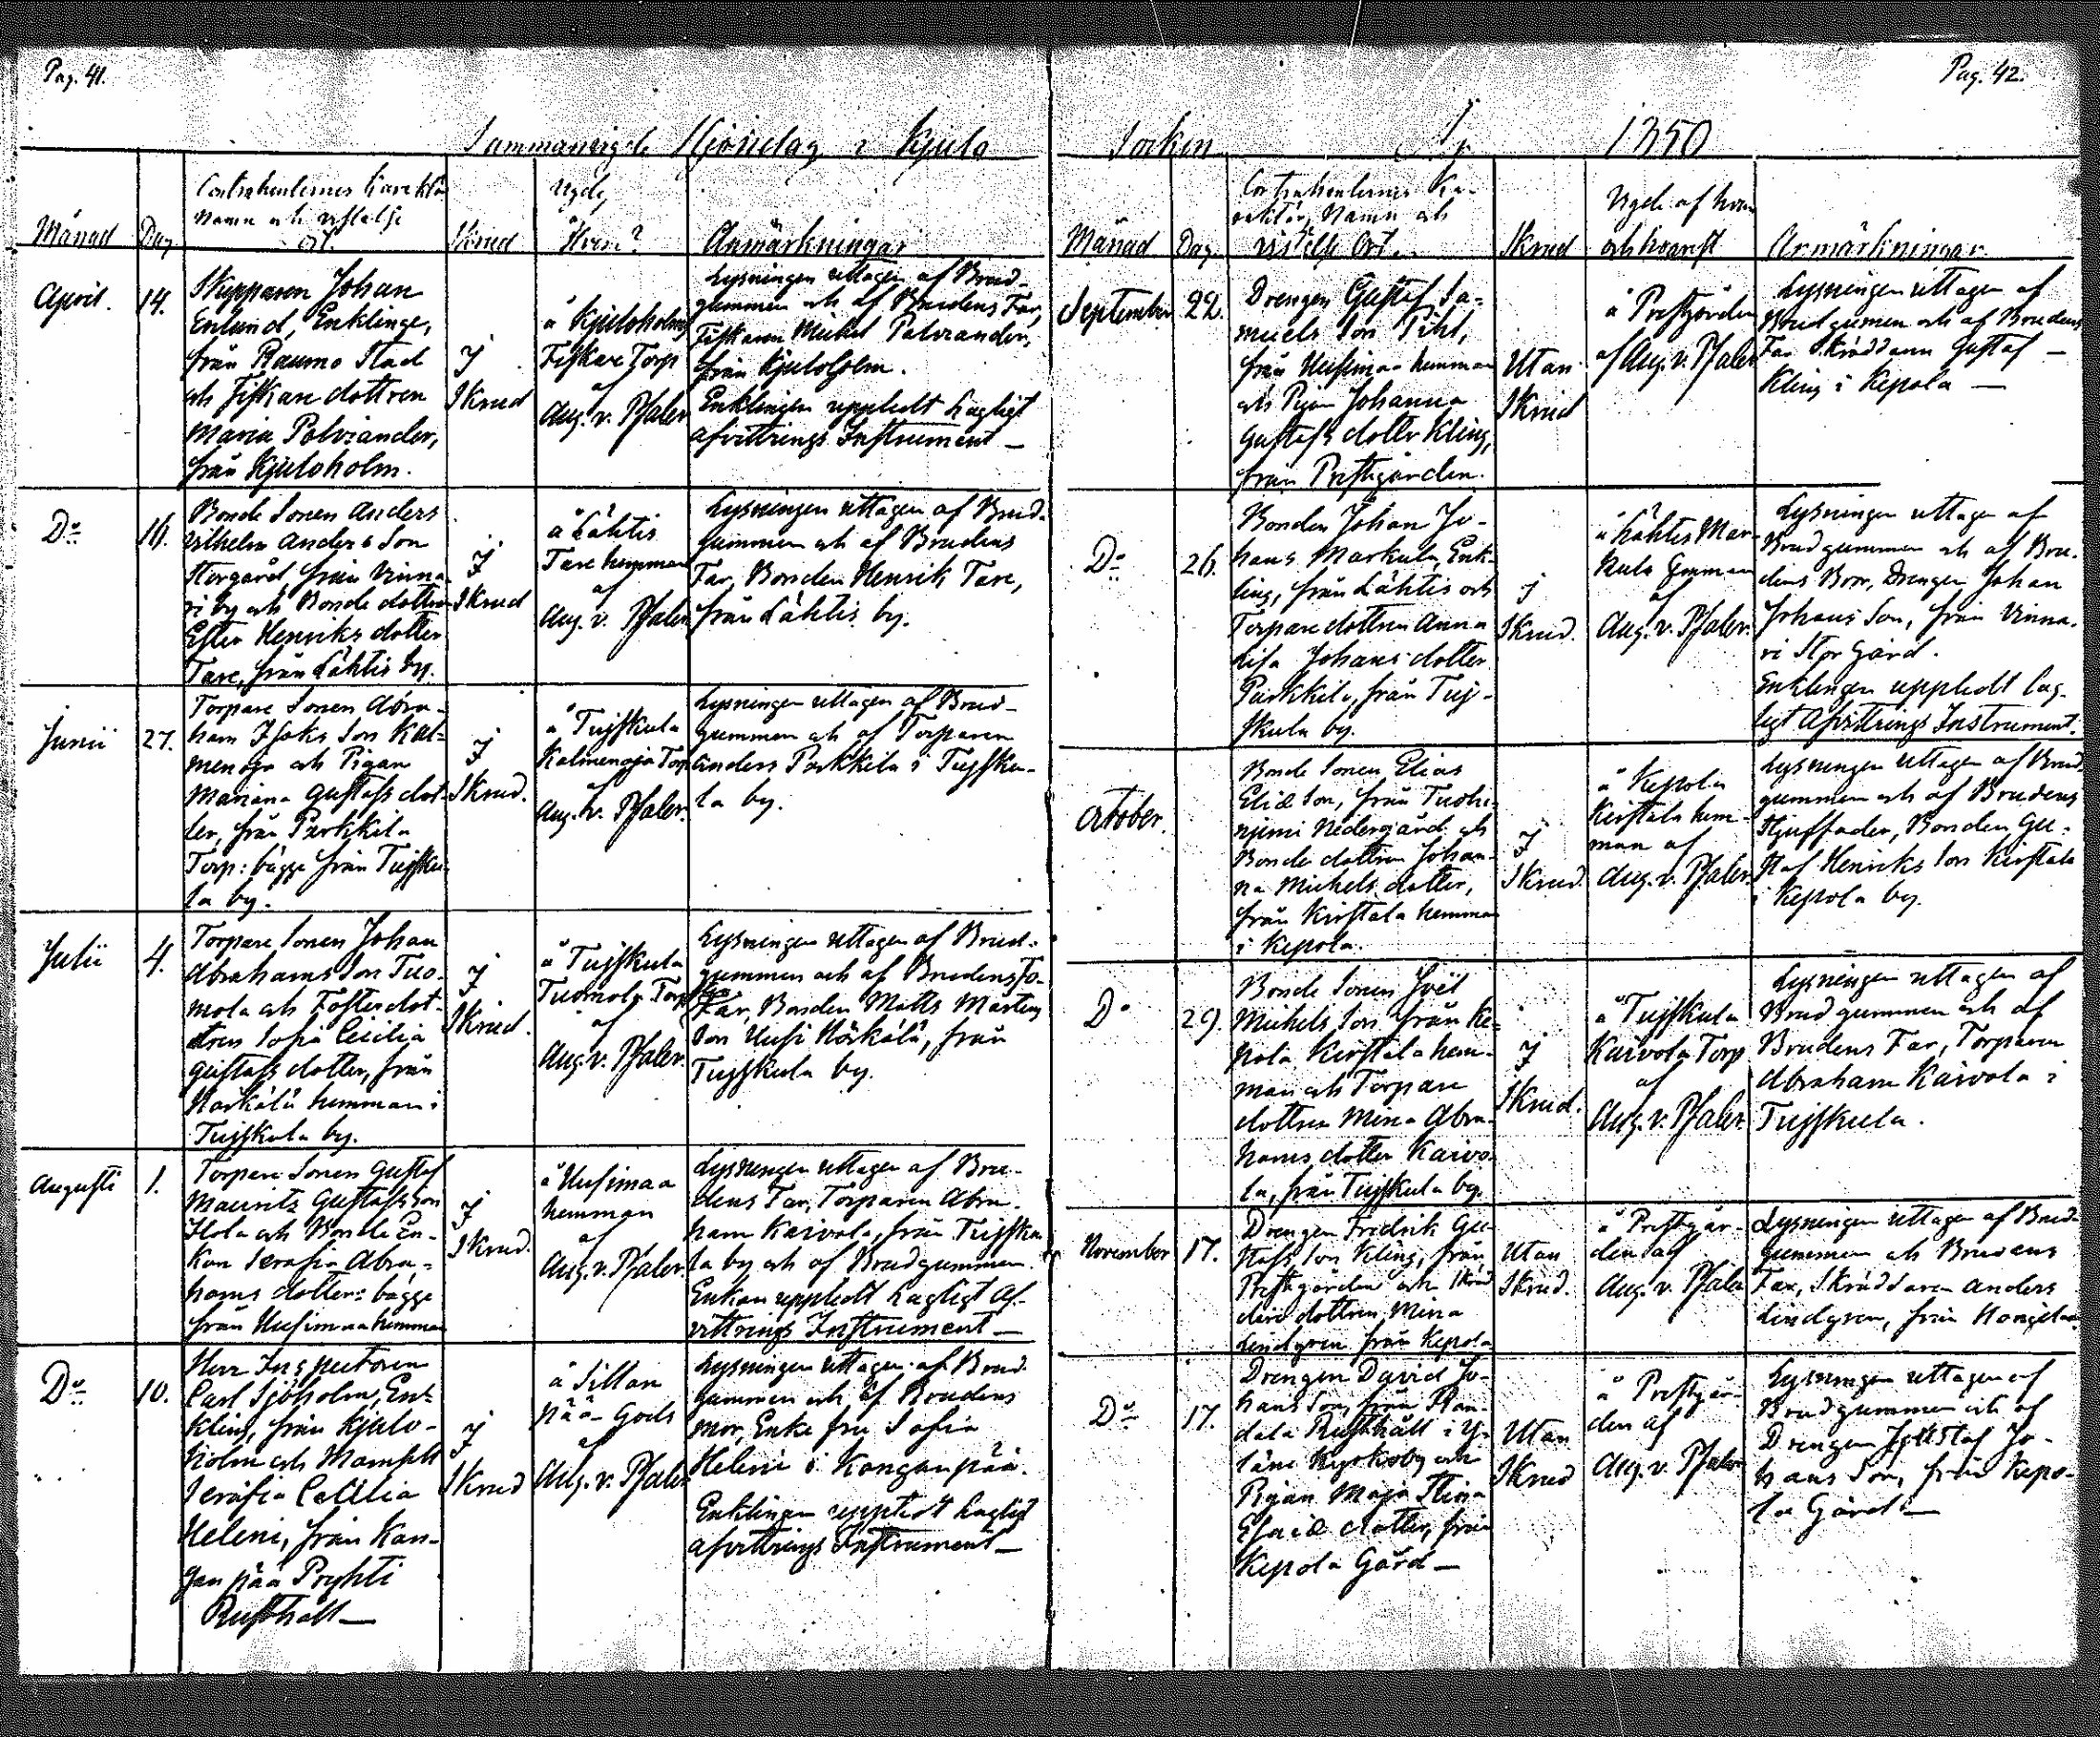 Pag. 41.
Sammanvigde Hjonelag i Kjulo
Månad
Dag
Contrahenternes Karektär
Namn och vistelse
ort.
Skrud
Vigde,
å
Hvem?
Anmärkningar
April.
14.
Skepparen Johan
Enlund, Enklinge,
från Raumo Stad
och Fiskare dottren
Maria Polviander,
från Kjuloholm.
J
Skrud
å Kjuloholms
Fiskare Torp
af
Aug. v. Pfaler
Lysningen uttagen af Brud-
gummen och af Brudens Far,
Fiskaren Michel Polviander,
från Kjuloholm.
Enklingen uppledt Lagligt
Afvittrings Instrument—
Do
16.
Bonde Sonen Anders
Vilhelm Anders Son
Storgård, från Vinna-
ri by och Bonde dottren
Ester Henriks dotter
Tare, från Lähtis by.
J
Skrud
å Lähtis
Tare hemman
af
Aug. v. Pfaler
Lysningen uttagen af Brud-
gummen och af Brudens
Far, Bonden Henrik Tare,
från Lähtis by.
Junii
27.
Torpare Sonen Abra-
ham Isaks Son Kal-
menoja och Pigan
Mariana Gustafs dot-
ter, från Parkkila
Torp: bägge från Tujsku-
la by.
J
Skrud.
å Tujskula
Kalmenoja Torp
af
Aug. v. Pfaler.
Lysningen uttagen af Brud-
gummen och af Torparen
Anders Parkkila i Tujsku-
la by.
Julii
4.
Torpare Sonen Johan
Abrahams Son Tuo-
mola och Fosterdot-
tren Sofia Cecilia
Gustafs dotter, från
Härkälä hemman i
Tujskula by.
J
Skrud.
å Tujskula
Tuomola Torp
af
Aug. v. Pfaler.
Lysningen uttagen af Brud-
gummen och af Brudens Fo-
ster Far, Bonden Matts Mårtens
Son Uusi Härkälä, från
Tujskula by.
Augusti
1.
Torpare Sonen Gustaf
Maurits Gustafs Son
Hola och Bonde En-
kan Serafia Abra-
hams dotter: bägge
från Uusimaa hemman
J
Skrud.
å Uusimaa
hemman
af
Aug. v. Pfaler.
Lysningen uttagen af Bru-
dens Far, Torparen Abra-
ham Kaivola, från Tujsku-
la by och af Brudgummen.
Enkan uppledt Lagligt Af-
vittrings Instrument—
Do
10.
Herr Inspectoren
Carl Sjöholm, En-
kling, från Kjulo-
holm och Mamsell
Serafia Cecilia
Heleni, från Kan-
gan pää Pryhti
Rusthåll—
J
Skrud
å Sillan
pää Gods
af
Aug. v. Pfaler
Lysningen uttagen af Brud
gummen och af Brudens
mor, Enke fru Sofia
Heleni i Kanganpää.
Enklingen uppledt Lagligt
afvittrings Instrument—
Pag. 42.
Socken År 1850
Månad
Dag.
Contrahenternes Ka-
raktär, Namn och
vistelse Ort.
Skrud
Vigde af hvem
och hvarest
Anmärkningar
September
22.
Drengen Gustaf Sa-
muels Son Pihl,
från Uusimaa hemman
och Pigan Johanna
Gustafs dotter Kling,
från Prestgården.
Utan
Skrud
å Prestgården
af Aug. v. Pfaler
Lysningen uttagen af
Brudgumen och af Brudens
Far Skräddaren Gustaf—
Kling i Kepola—
Do
26.
Bonden Johan Jo-
hans Markula, Enk-
ling, från Lähtis och
Torpare dottren Anna
Lisa Johans dotter
Parkkila, från Tuj-
skula by.
J
Skrud.
å Lähtis Mar-
kula hemman
af
Aug. v. Pfaler.
Lysningen uttagen af
Brudgummen och af Bru-
dens Bror, Drengen Johan
Johans Son, från Vinna-
ri Storgård.
Enklingen uppledt lag-
ligt Afvittrings Instrument.
October.
Bonde Sonen Elias
Eliæ Son, från Tuohi-
niemi Nedergård och
Bonde dottren Johan-
na Michels dotter,
från Kirstala hemman
i Kepola.
J
Skrud.
å Kepola
Kirstala hem-
man af
Aug. v. Pfaler.
Lysningen uttagen af Brud
gummen och af Brudens
Stjuffader, Bonden Gu-
staf Henriks Son Kirstala
i Kepola by.
Do
29.
Bonde Sonen Joël
Michels Son från Ke-
pola Kirstala hem-
man och Torpare
dottren Mina Abra-
hams dotter Kaivo-
la, från Tujskula by.
J
Skrud.
å Tujskula
Kaivola Torp
af
Aug. v. Pfaler
Lysningen uttagen af
Brudgummen och af
Brudens Far, Torparen
Abraham Kaivola i
Tujskula.
November
17.
Drengen Fridrik Gu-
stafs Son Kling, från
Prestgården och Skräd
dare dottren Mina
Lindgren från Kepola
Utan
Skrud.
å Prestgår-
den af
Aug. v. Pfaler
Lysningen uttagen af Brud-
gummen och Brudens
Far, Skräddaren Anders
Lindgren, från
Do
17.
Drengen David Jo-
hans Son, från
dala Rusthåll i Y-
läne Kyrkoby och
Pigan Maja Stina
Esaiæ dotter, från
Kepola Gård—
Utan
Skrud
å Prestgår-
den af
Aug. v. Pfaler
Lysningen uttagen af
Brudgummen och af
Drengen Gustaf Jo-
hans Son, från Kepo-
la Gård—